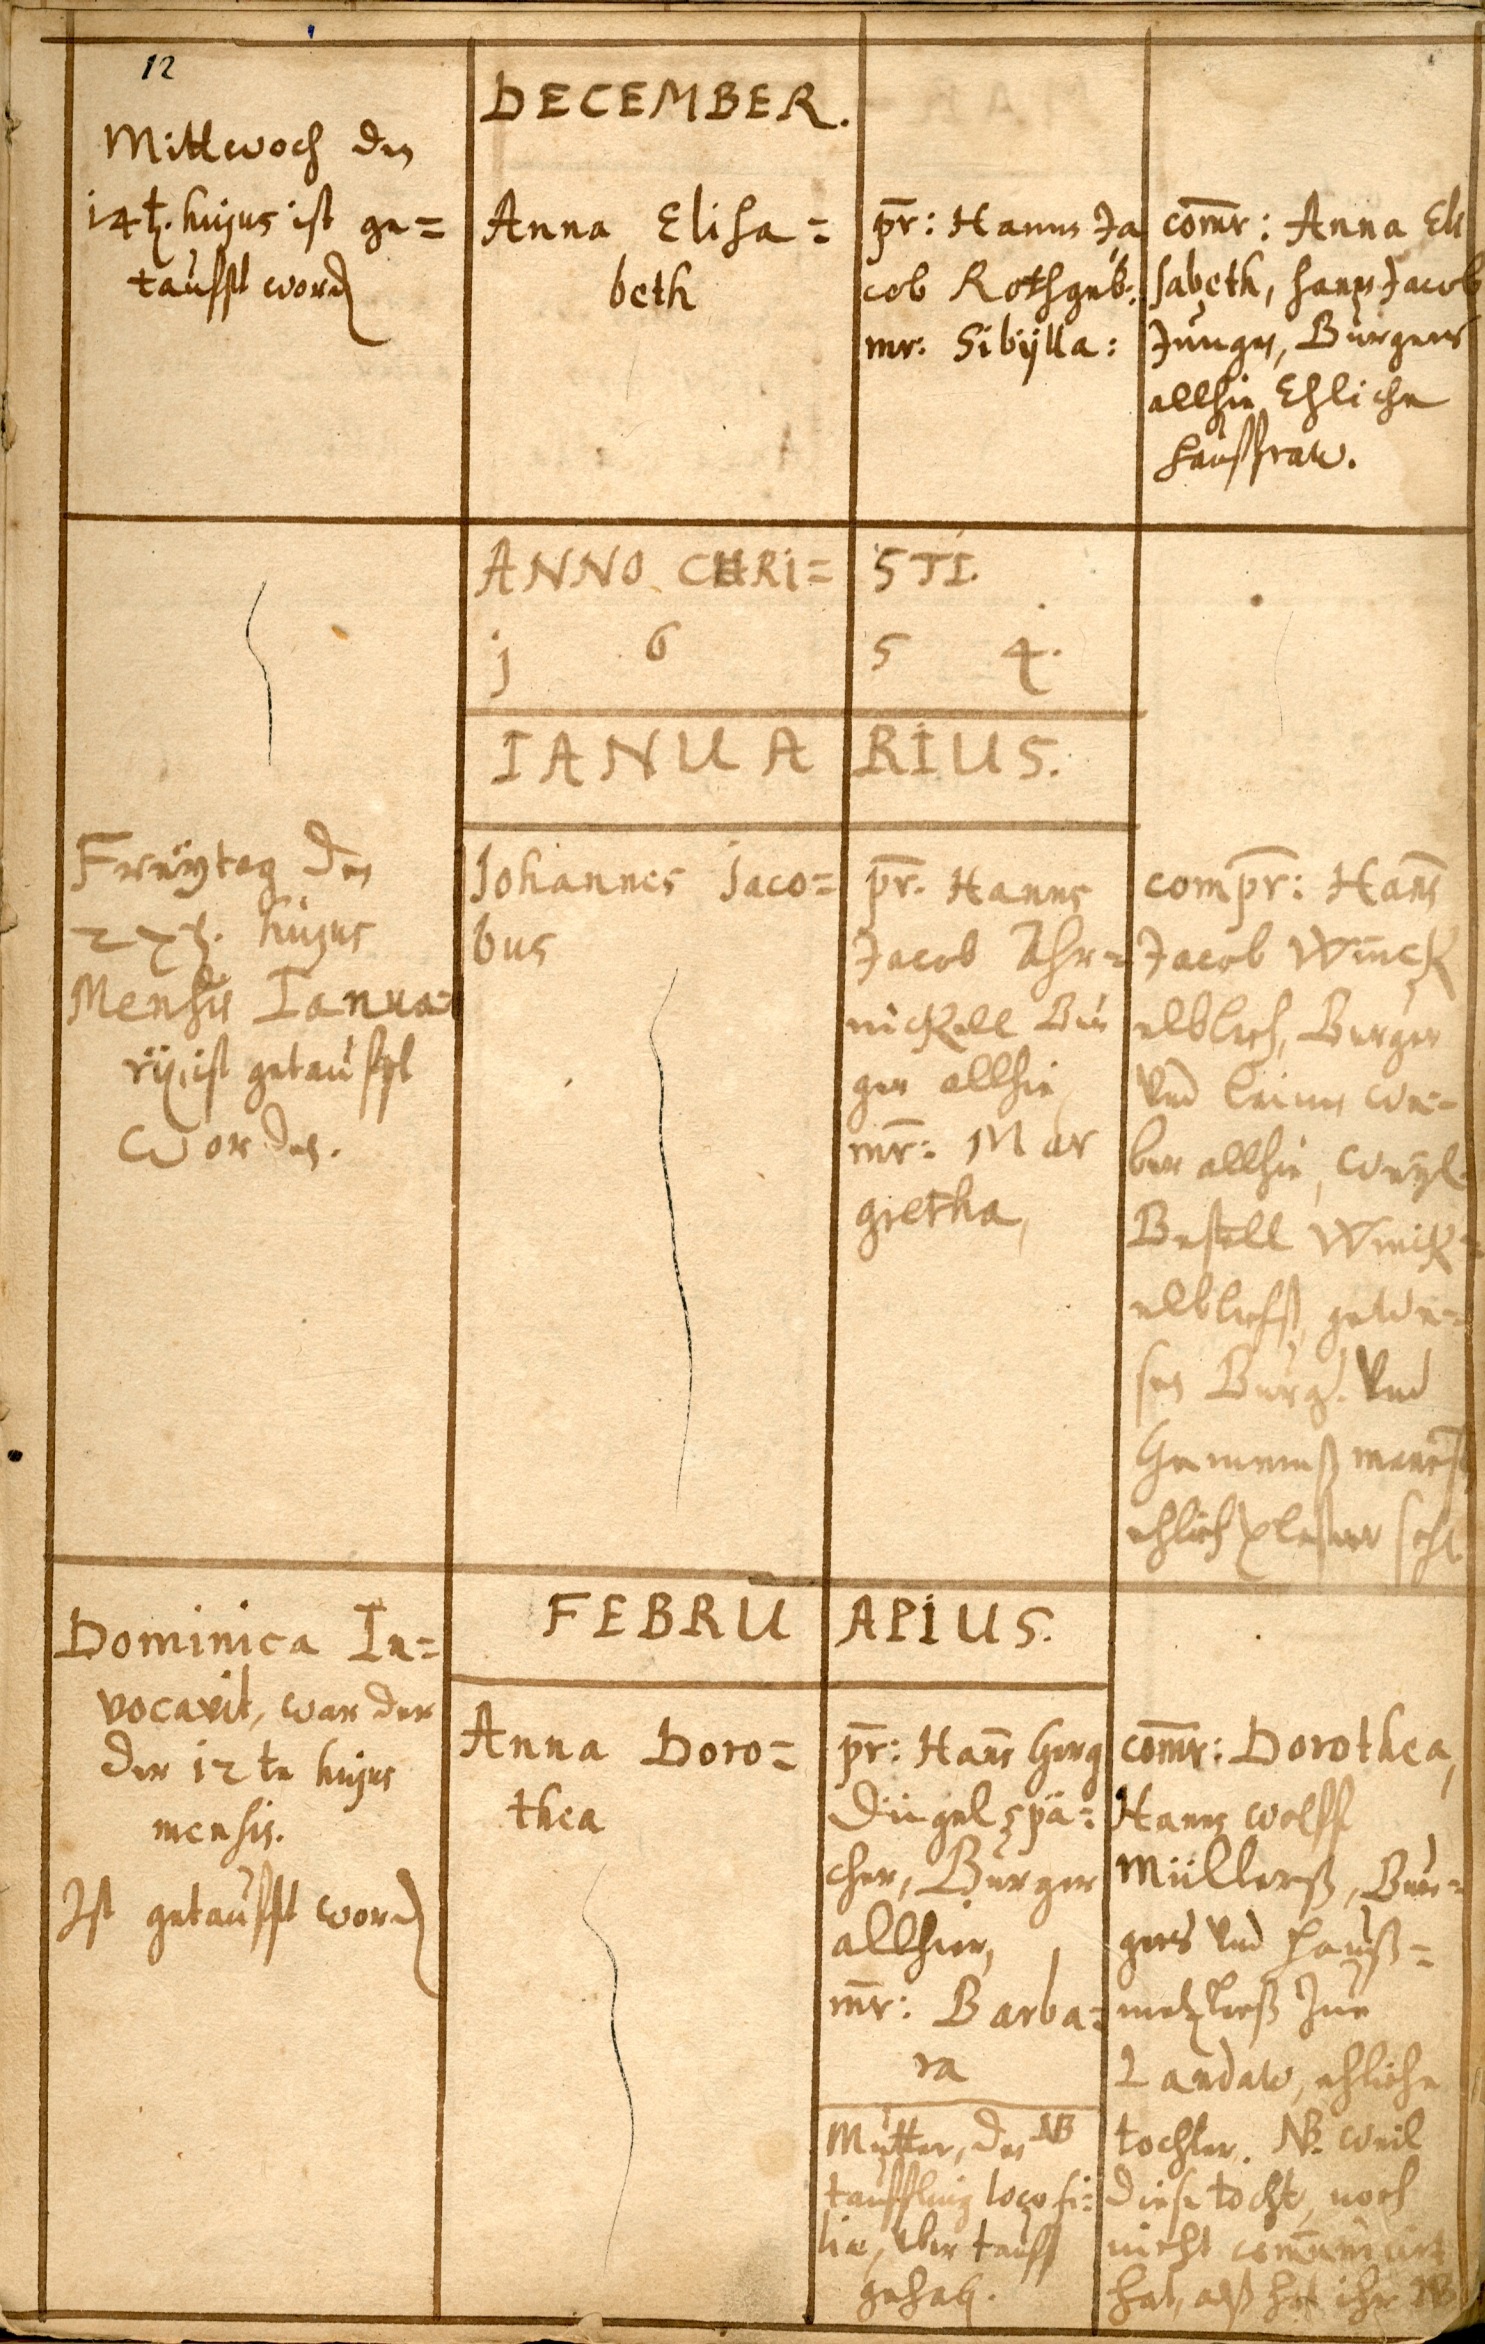 12
DECEMBER.
Mittwoch den
14t. hujus ist ge=
taufft word
Anna Elisa=
beth
pr: Hanns Ja
cob Rothgeb:
mr: Sibÿlla:
comr: Anna Eli
sabeth, hanß Jacob
Junges, Burgers
allhie Ehliche
haussfraw.
ANNO CHRI= STI.
j 6 5 4.
IANUA RIUS.
Freÿtag den
hujus
Mensis Ianua=
rij, ist getaufft
worden.
Iohannes Jaco=
bus
pr. Hanns
Jacob
Bur
ger allhie,
mr: Mar
gretha,
compr: Hans
Jacob Winck
elblech, Burger
und leinen we=
ber allhie, weÿl.
Bastell Winck=
elblechs, gewe=
sen Burg. und
ehlich
FEBRU ARIUS.
Dominica In=
vocavit, war der
der 12te hujus
mensis.
Ist getaufft word
Anna Doro=
thea
pr: Hans Gerg
Dingelspä=
cher, Burger
allhier,
mr: Barba=
ra
Mutter, des NB
taufflings loco fi=
liæ, uber tauff
gehab.
comr: Dorothea,
Hanns wolff
Müllerß, Bur=
gers und hauß=
metzlerß zue
Landaw, ehliche
tochter. NB. weil
diese tocht, noch
nicht communicirt
hat, alß hat ihr NB